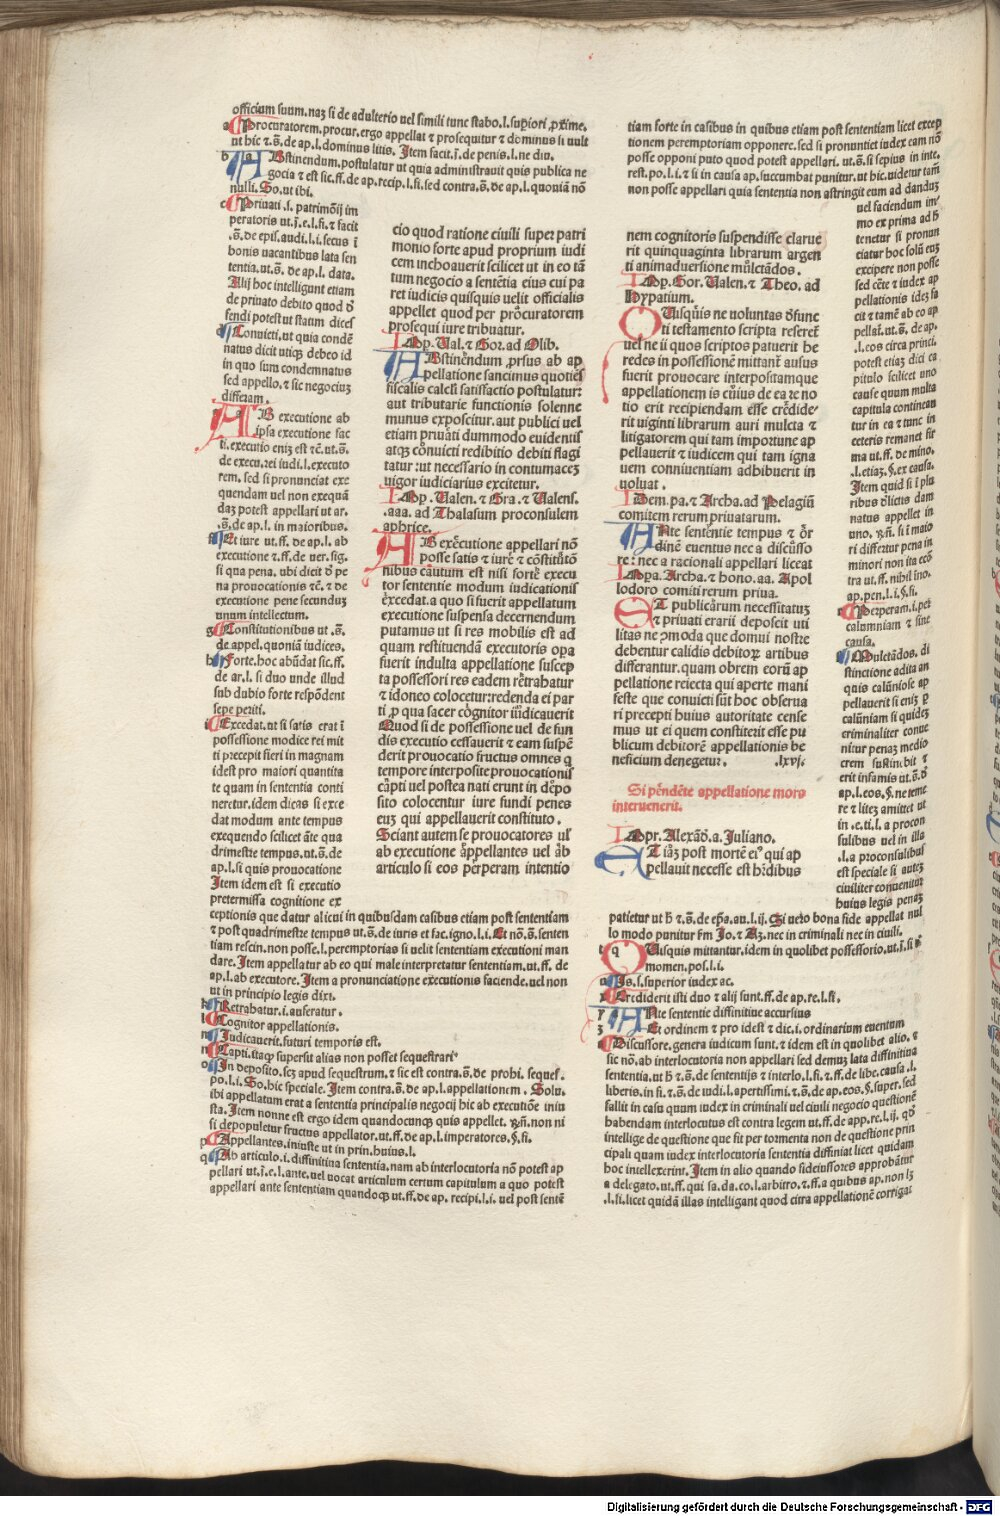 officium suum.naꝫ si de adulterio uel simili tunc stabo.l.superiori ꝓxime.
Procuratorem.procur.ergo appellat ⁊ prosequitur ⁊ dominus si uult
ut hic ⁊.s̄.de ap.l.dominus litis. Item facit.j̄.de penis.l.ne diu.
ABstinendum.postulatur ut quia administrauit quis publica ne
gocia ⁊ est sic.ff.de ap.recip.l.si.sed contra.s̄.de ap.l.quoniā nō
nulli. So.ut ibi.
Priuati .s. patrimōij im
peratoris ut.j̄.e.l.fi.⁊ facit
.s̄.de epis.audi.l.i.secus ī
bonis uacantibus lata sen
tentia.ut.s̄. de ap.l. data.
Alij hoc intelligunt etiam
de priuato debito quod d̄
fendi potest ut statim dices
Conuicti.ut quia condē
natus dicit utiqꝫ debeo id
in quo sum condemnatus
sed appello.⁊ sic negociuꝫ
differam.
AB executione ab
ipsa executione fac
ti.executio eniꝫ est tc̄.ut.s̄.
de execu.rei iudi.l.executo
rem. sed si pronunciat exe
quendam uel non exequā
daꝫ potest appellari ut ar.
.s̄.de ap.l. in maioribus.
Et iure ut.ff. de ap.l. ab
executione ⁊.ff.de uer.sig.
si qua pena. ubi dicit d̄ pe
na prouocationis tc̄. ⁊ de
executione pene secunduꝫ
unum intellectum.
Constitutionibus ut .s̄.
de appel.quoniā iudices.
Forte.hoc abūdat sic.ff.
de ar.l. si duo unde illud
sub dubio forte respōdent
sepe periti.
Excedat.ut si satis erat ī
possessione modice rei mit
ti precepit fieri in magnam
idest pro maiori quantita
te quam in sententia conti
neretur.idem dicas si exce
dat modum ante tempus
exequendo scilicet āte qua
drimestre tempus.ut.s̄.de
ap.l.si quis prouocatione
Item idem est si executio
pretermissa cognitione ex
ceptionis que datur alicui in quibusdam casibus etiam post sententiam
⁊ post quadrimestre tempus ut.s̄.de iuris et fac.igno.l.i. Et nō.s̄.senten
tiam rescin.non posse.l.peremptorias si uelit sententiam executioni man
dare. Item appellatur ab eo qui male interpretatur sententiam.ut.ff. de
ap.l.ab executore. Item a pronunciatione executionis faciende.uel non
ut in principio legis dixi.
Retrabatur.i.auferatur .
Cognitor appellationis.
Iudicauerit.futuri temporis est.
Capti.itaqꝫ supersit alias non posset sequestrari
In deposito.scꝫ apud sequestrum.⁊ sic est contra.s̄.de probi. seques.
po.l.i. So.hic speciale. Item contra.s̄.de ap.l.appellationem. Solu.
ibi appellatum erat a sententia principalis negocij hic ab executiōe iniu
sta. Item nonne est ergo idem quandocunqꝫ quis appellet. Rn̄.non ni
si depopuletur fructus appellator.ut.ff.de ap.l.imperatores.§.fi.
Appellantes.iniuste ut in prin.huius.l.
Ab articulo.i.diffinitina sententia.nam ab interlocutoria nō potest ap
pellari ut.j̄.e.l.ante.uel uocat articulum certum capitulum a quo potest
appellari ante sententiam quandoqꝫ ut.ff.de ap.recipi.l.i. uel post sentē
cio quod ratione ciuili super patri
monio forte apud proprium iudi
cem inchoauerit scilicet ut in eo tā
tum negocio a sentētia eius cui pa
ret iudicis quisquis uelit officialis
appellet quod per procuratorem
prosequi iure tribuatur.
Imp. Ual.⁊ Gor.ad Olib.
ABstinēndum ꝓrsus ab ap
pellatione sancimus quotiēs
fiscalis calculi satisfactio postulatur:
aut tributarie functionis solenne
munus exposcitur.aut publici uel
etiam priuāti dummodo euidentis
atqꝫ cōnuicti redibitio debiti flagi
tatur :ut necessario in contumaceꝫ
uigor iudiciarius excitetur.
Imp. Ualen.⁊ Gra.⁊ Ualens.
.aaa. ad Thalasum proconsulem
aphrice.
AB execūtione appellari nō
posse satis ⁊ iurē ⁊ cōstitūtō
nibus cāutum est nisi fortē execu
tor sententie modum iudicationis
excedat.a quo si fuerit appellatum
executione suspensa decernendum
putamus ut si res mobilis est ad
quam restituendā executoris opa
fuerit indulta appellatione suscep
ta possessori res eadem retrabatur
⁊ idoneo colocetur:redenda ei par
ti ꝓ qua sacer cōgnitor iūdicauerit
Quod si de possessione uel de fun
dis executio cessauerit ⁊ eam suspē
derit prouocatio fructus omnes q
tempore interposite prouocationis
cāpti uel postea nati erunt in dēpo
sito colocentur iure fundi penes
euꝫ qui appellauerit constituto .
Sciant autem se prouocatores ul̄
ab executione āppellantes uel āb
articulo si eos perperam intentio
tiam forte in casibus in quibus etiam post sententiam licet excep
tionem peremptoriam opponere.sed si pronuntiet iudex eam nō
posse opponi puto quod potest appellari. ut.s̄.si sepius in inte.
rest.po.l.i.⁊ si in causa ap.succumbat punitur.ut hic.uidetur tam̄
non posse appellari quia sententia non astringit eum ad danduꝫ
uel faciendum im
mo ex prima ad h̄
tenetur si pronun
ciatur hoc solū euꝫ
excipere non posse
sed cēte ⁊ iudex ap
pellationis ideꝫ fa
cit ⁊ tamē ab eo ap
pellat̄.ut.s̄. de ap.
.l.eos circa princi.
potest etiaꝫ dici ca
pitulo scilicet uno
cause quum multa
capitula continean
tur in ea ⁊ tunc in
ceteris remanet fir
ma ut.ff. de mino.
.l.etiaꝫ.§.ex causa.
Item quid si ī plu
ribus d̄lictis dam
natus appellet in
uno. Rn̄. si ī maio
ri differtur pena in
minori non ita ecō
tra ut.ff. nihil īno.
ap.pen.l.i.§.fi.
Perperam.i.per
calumniam ⁊ sine
causa.
Mulctādos. di
stinctione adita an
quis calūniose ap
pellauerit si eniꝫ p
calūniam si quideꝫ
criminaliter conue
nitur penaꝫ medio
crem sustinebit ⁊
erit infamis ut.s̄.d̄
ap.l.eos.§.ne teme
re ⁊ liteꝫ amittet ut
in .c.ti.l. a procon
sulibus uel in illa
.l.a proconsulibus
est speciale si auteꝫ
ciuiliter conuenitur
huius legis penaꝫ
nem cognitoris suspendisse clarue
rit quinquaginta librarum argen
ti animaduersione mūlctādos .
Imp. Gor.Ualen.⁊ Theo. ad
Hypatium.
QUisquis ne uoluntas d̄func
ti testamento scripta reseret̄
uel ne ii quos scriptos patuerit he
redes in possessionē mittant̄ ausus
fuerit prouocare interpositamque
appellationem is cūius de ea re no
tio erit recipiendam ēsse crēdide
rit uiginti librarum auri mulcta ⁊
litigatorem qui tam importune ap
pellauerit ⁊ iudicem qui tam igna
uem conniuentiam adhibuerit in
uoluat .
Idem.pa.⁊ Archa.ad Pelagiū
comitem rerum priuatarum.
ANte sentēntie tempus ⁊ ōr
dinē euentus nec a discūsso
re : nec a racionali appellari liceat
Impa. Archa.⁊ hono.aa. Apol
lodoro comiti rerum priua.
ET publicārum necessitatuꝫ
⁊ priuati erarii deposcit uti
litas ne ꝯmoda que domui nostre
debentur calidis debitoꝝ artibus
differantur.quam obrem eorū ap
pellatione reiecta qui aperte mani
feste que conuicti sūt hoc obserua
ri precepti huius autoritate cense
mus ut ei quem constiterit esse pu
blicum debitorē appellationis be
neficium denegetur. .lxvj.
Si pēndēte appellatione mors
interuenerit.
Impr. Alexād̄.a. Juliano.
ETiāꝫ post mortē ei⁹ qui ap
pellauit necesse est hꝛ̄dibus
patietur ut h̄ ⁊.s̄.de ep̄a.au.l.ij. Si uero bona fide appellat nul
lo modo punitur fm̄ Jo.⁊ Aꝫ.nec in criminali nec in ciuili.
QUisquis mittantur.idem in quolibet possessorio.ut.j̄.si
momen.pos.l.i.
Is.s.superior iudex ac.
Crediderit isti duo ⁊ alij sunt.ff.de ap.re.l.fi.
ANte sententie diffinitiue accursius
Et ordinem ⁊ pro idest ⁊ dic.i.ordinarium euentum
Discussore.genera iudicum sunt.⁊ idem est in quolibet alio. ⁊
sic nō.ab interlocutoria non appellari sed demuꝫ lata diffinitiua
sententia.ut h̄ ⁊.s̄.de sententijs ⁊ interlo.l.fi.⁊.ff.de libe.causa.l.
liberis.in fi.⁊.s̄.de iudi.l.apertissimi.⁊.s̄.de ap.eos.§.super.sed
fallit in casu quum iudex in criminali uel ciuili negocio questionē
habendam interlocutus est contra legem ut.ff.de app.re.l.ij. qd̄
intellige de questione que fit per tormenta non de questione prin
cipali quam iudex interlocutoria sententia diffiniat licet quidam
hoc intellexerint. Item in alio quando fideiussores approbātur
a delegato.ut.ff.qui sa.da.co.l.arbitro.⁊.ff.a quibus ap.non lꝫ
.l.fi.licet quidā illas intelligant quod citra appellationē corrigat
Digitalisierung gefördert durch die Deutsche Forschungsgemeinschaft - DFG